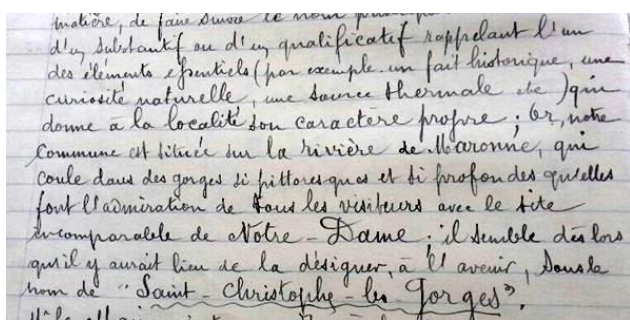 matière, de faire suivre le nom
d'un substantif ou d'un qualificatif rappelant l'un
des éléments essentiels (par exemple un fait historique, une
curiosité naturelle, une source thermale etc) qui
donne à la localité son caractère propre ; Or, notre
Commune est située sur la rivière de Maronne, qui
coule dans des gorges si pittoresques et si profondes qu'elles
font l'admiration de tous les visiteurs avec le site
incomparable de Notre-Dame ; il semble dès lors
qu'il y aurait lieu de la désigner, à l'avenir, sous le
nom de "Saint-Christophe-les-Gorges".